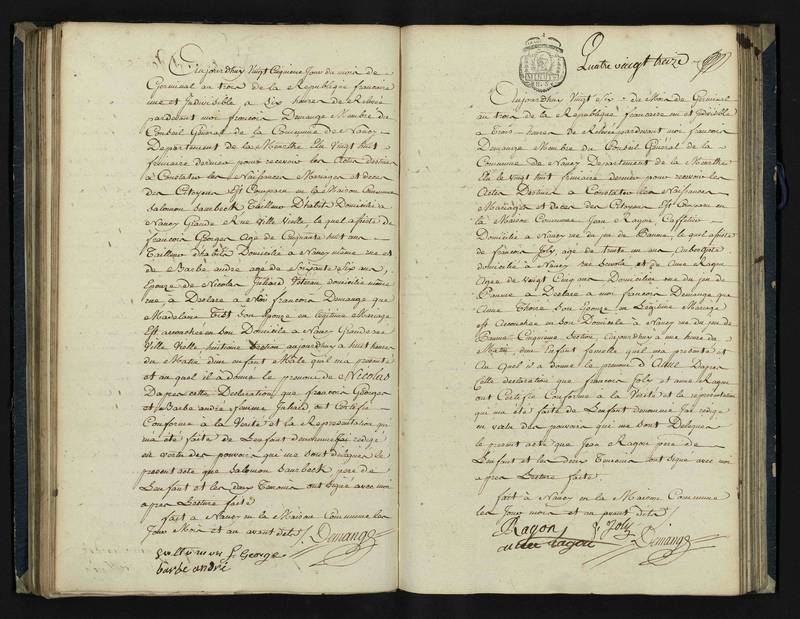 Aujourdhuy Vingt Cinquieme Jour du mois de
Germinal an trois de la Republique francaise
une et Indivisible a Six heures de Relevée
pardevant moi francois Demange Membre du
Conseil Général de la Commune de Nancy
Departement de la Meurthe Elu Vingt huit
frimaire dernier pour recevoir les Actes destinés
a Constater les Naissances Mariages et deces
des Citoyens Est Comparu en la Maison Commune
Salomon Tailleur D'habits Domicilié a
Nancy Grande Rue Ville Vieille, le quel assisté de
francois Georges Age de Cinquante huit ans
Tailleur d'habits Domicilié a Nancy même rue et
de Barbe andré age de Soixante Six ans,
Epouze de Nicolas Juliard domiciliée même
rue, a Declaré a Moi francois Demange que
Madelaine son Epouze en légitime Mariage
Est accouchée en son Domicile a Nancy Grande rue
Ville Vielle huitieme Section aujourdhuy a huit heures
du Matin d'un enfant Male qu'il m'a présenté
et au quel il a donné le prenom de Nicolas
Dapres cette Declaration que francois Georges
et Barbe andré femme Juliard ont Certifié
Conforme a la Verité et la Representation qui
m'a été faite de Lenfant denommé jai redigé
en vertu des pouvoirs qui me sont délegués le
present acte que Salomon pere de
Lenfant et les deux Temoins ont signé avec moi
apres Lecture faite
fait a Nancy en la Maison Commune les
Jour Mois et an avant dits / Demange
f. George
barbe andré
Quatre vingt treize
Aujourdhuy Vingt Six du Mois de Germinal
an trois de la Republique francaise une et Indivisible
a Trois heures de Relevée pardevant moi francois
Demange Membre du Conseil Général de la
Commune de Nancy Departement de la Meurthe
Elu le vingt huit frimaire dernier pour recevoir les
Actes Destinés a Constater les Naissances
Mariages et deces des Citoyens Est Comparu en
la Maison Commune Jean Ragon Caffetier
Domicilié a Nancy rue du jeu de Paume, le quel assisté
de francois Joly, age de trente un ans
domicilié a Nancy rue et de anne Ragon
Agée de vingt Cinq ans Domiciliée rue du jeu de
Paume a Declaré a moi francois Demange que
Anne son Epouze en Légitime Mariage
est accouchée en son Domicile a Nancy rue du jeu de
Paume Cinquieme Section, aujourdhuy a une heure du
Matin dun Enfant femelle quil ma presenté et
au quel il a donné le prenom d'Anne Dapres
Cette declaration que francois Joly et anne Ragon
ont Certifié Conforme a la Verité et la representation
qui ma été faite de Lenfant denommé jai redigé
en vertu des pouvoirs qui me sont Delegués
le present acte que Jean Ragon pere de
Lenfant et les deux Temoins ont signé avec moi
apres Lecture faite.
fait a Nancy en la Maison Commune
les Jour mois et an avant dits /
Ragon f Joly
Demange